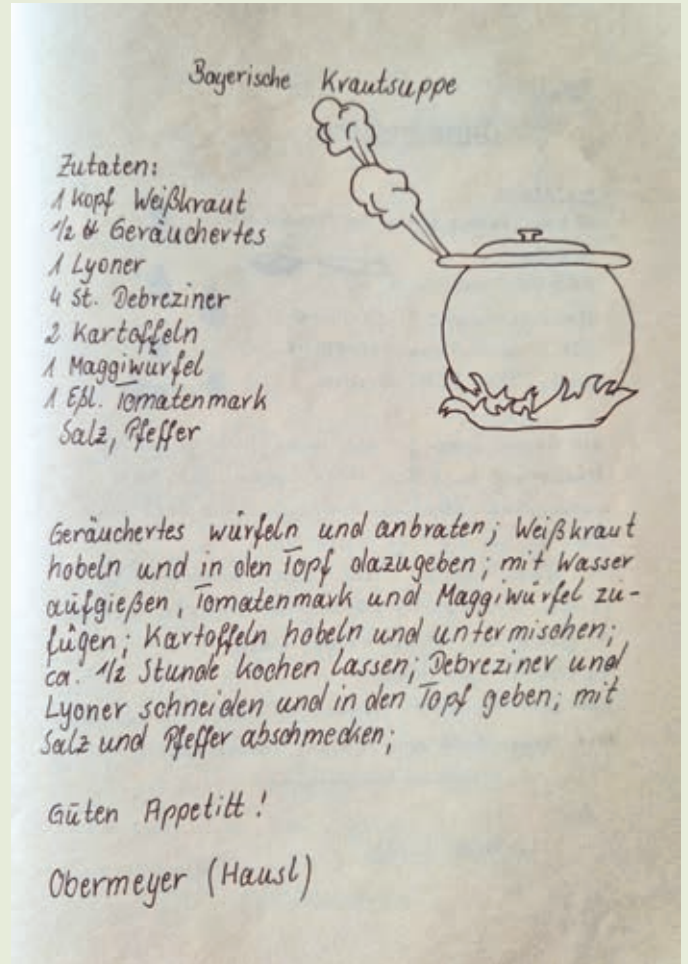 Bayerische Krautsuppe
Zutaten:
1 Kopf Weißkraut
1/2 ℔ Geräuchertes
1 Lyoner
4 St. Debreziner
2 Kartoffeln
1 Maggiwürfel
1 Eßl. Tomatenmark
Salz, Pfeffer
Geräuchertes würfeln und anbraten; Weißkraut
hobeln und in den Topf dazugeben; mit Wasser
aufgießen, Tomatenmark und Maggiwürfel zu-
fügen; Kartoffeln hobeln und untermischen;
ca. 1/2 Stunde kochen lassen; Debreziner und
Lyoner schneiden und in den Topf geben; mit
Salz und Pfeffer abschmecken;
Guten Appetitt!
Obermeyer (Hausl)